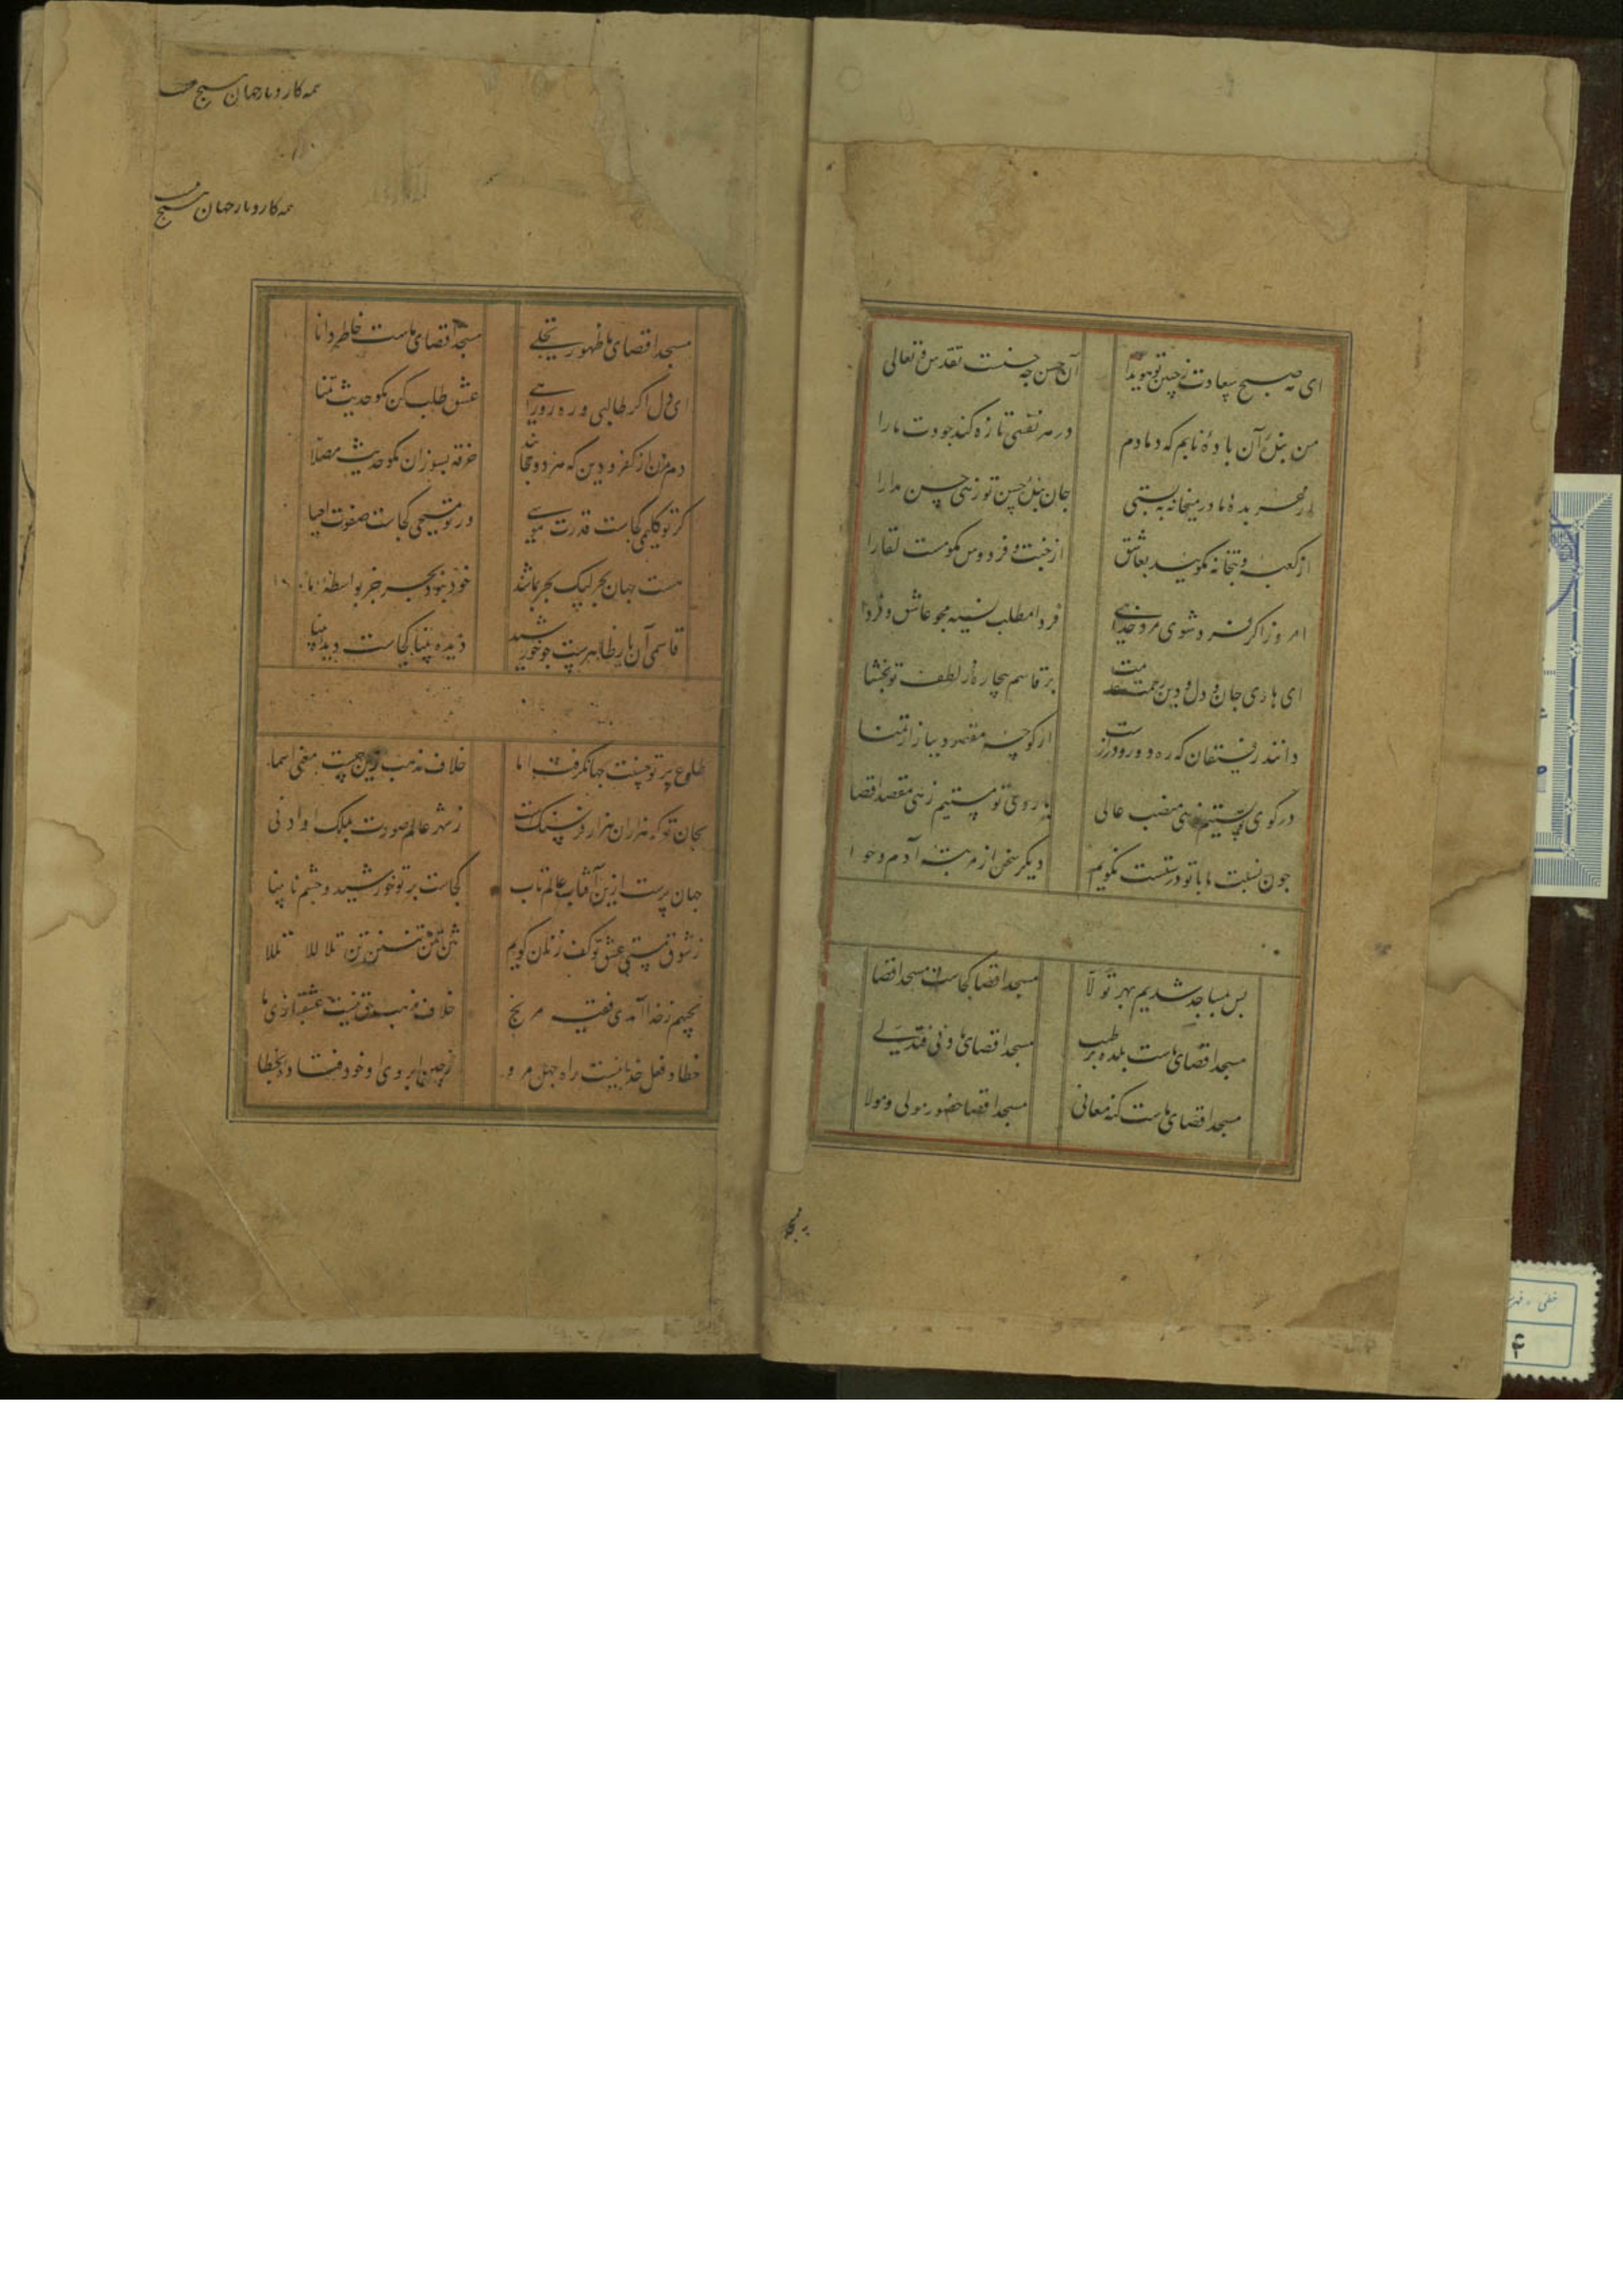 ای صبح سعادت ز جبین تو هویدا آن حسن چه حسنست تقدس و تعالی
من بندهٔ آن بادهٔ نابم که دمادم در هر نفسی تازه کند جودت ما را
در میخانه به بستی جان بندهٔ حسن تو زهی حسن مدارا
از کعبه و بتخانه مگویید بعاشق از جنت و فردوس مگو مست لقا را
امروز اگر فرد شوی مرد خدایی فردا مطلب نسیه مجو عاشق فردا
ای هادی جان و دل و دین رحمت بر قاسم بیچاره ز لطفت تو ببخشا
دانند رفیقان که ره دور و درازست از کوچهٔ مقصود ببازار تمنا
در کوی تو پستیم زهی منصب عالی با روی تو مستیم زهی مقصد اقصا
چون نسبت ما با تو درستست نگویم دیگر سخن از مرتبهٔ آدم و حوا
بس بمساجد شدیم بهر تولا مسجد اقصا کجاست مسجد اقصا
مسجد اقصای ماست بلدهٔ طیب مسجد اقصای ما دنی فتدلی
مسجد اقصای ماست کنه معانی مسجد اقصا حضور مولی و مولا
همه کار و بار جهان هیچ
همه کار و بار جهان هیچ
مسجد اقصای ما ظهور تجلی مسجد اقصای ماست خاطر دانا
ای دل اگر طالبی و ره رو راهی عشق طلب کن مگو حدیث تمنا
دم مزن از کفر و دین که هر دو حجابند خرقه بسوزان مگو حدیث مصلا
گر تو کلیمی کجاست قدرت موسی ور تو مسیحی کجاست صفوت احیا
هست جهان بحر لیک بحر نباشد خود نبود بحر جز بواسطهٔ ما
قاسمی آن یار ظاهرست چو خورشید دیدهٔ بینا کجاست دیدهٔ بینا
طلوع پرتو حسنت جهان گرفت اما خلاف مذهب و دین چیست مقتضی اسما
بجان تو که هزاران هزار فرسنگست ز شهر عالم صورت بملک او ادنی
جهان پرست ازین آفتاب عالم تاب کجاست پرتو خورشید و چشم نابینا
ز شوق مستی عشق تو کف زنان گویم تنن تنن تننن تن تلا للا تللا
بچهم ز خدا آمدی فقیه مرنج خلاف مذهب حق نیست عشقبازی ما
خطا و فعل خدا نیست راه جهل مرو ز چین ابروی او خود فتاد